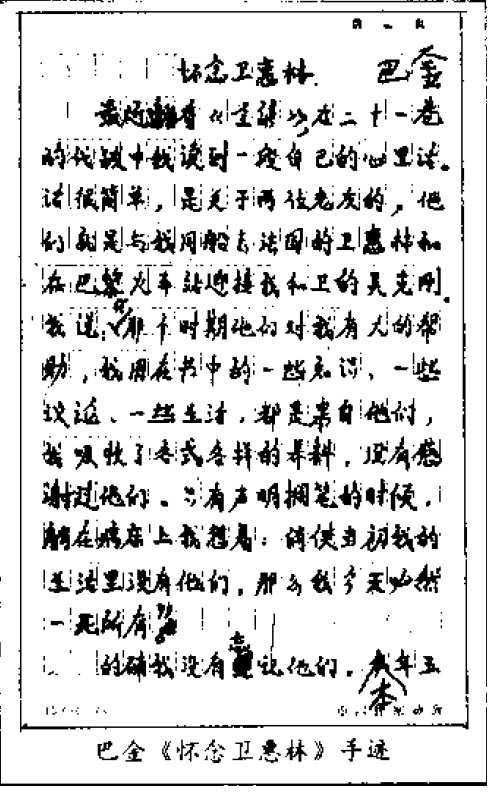 第一页
怀念卫惠林
巴金
最近翻看《全集》,在二十一卷
的代跋中我读到一段自己的心里话。
话很简单,是关于两位老友的,他
们就是与我同船去法国的卫惠林和
在巴黎火车站迎接我和卫的吴克刚。
我说,那个时期他们对我有大的帮
助,我用在书中的一些知识、一些
议论、一些生活,都是来自他们,
我吸收了各式各样的养料,没有感
谢过他们。只有声明搁笔的时候,
躺在病床上我想着:倘使当初我的
生活里没有他们,那么我今天必然
一无所有
的确我没有忘记他们。本年五
巴金《怀念卫惠林》手迹